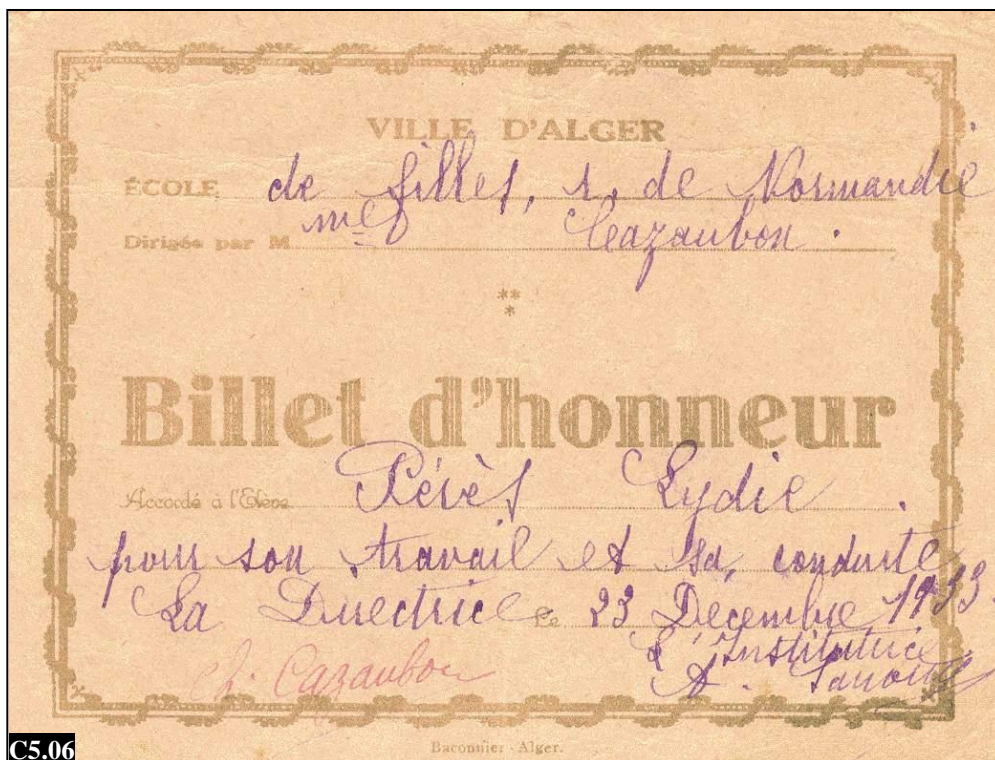 VILLE D'ALGER
ÉCOLE de filles, r. de Normandie
Dirigée par M me Cazaubon.
***
Billet d'honneur
Accordé à l'Elève Pérès Lydie.
pour son travail et sa conduite
La Directrice Le 23 Decembre 1933.
L'Institutrice
Cazaubon A.
Baconnier - Alger.
C5.06